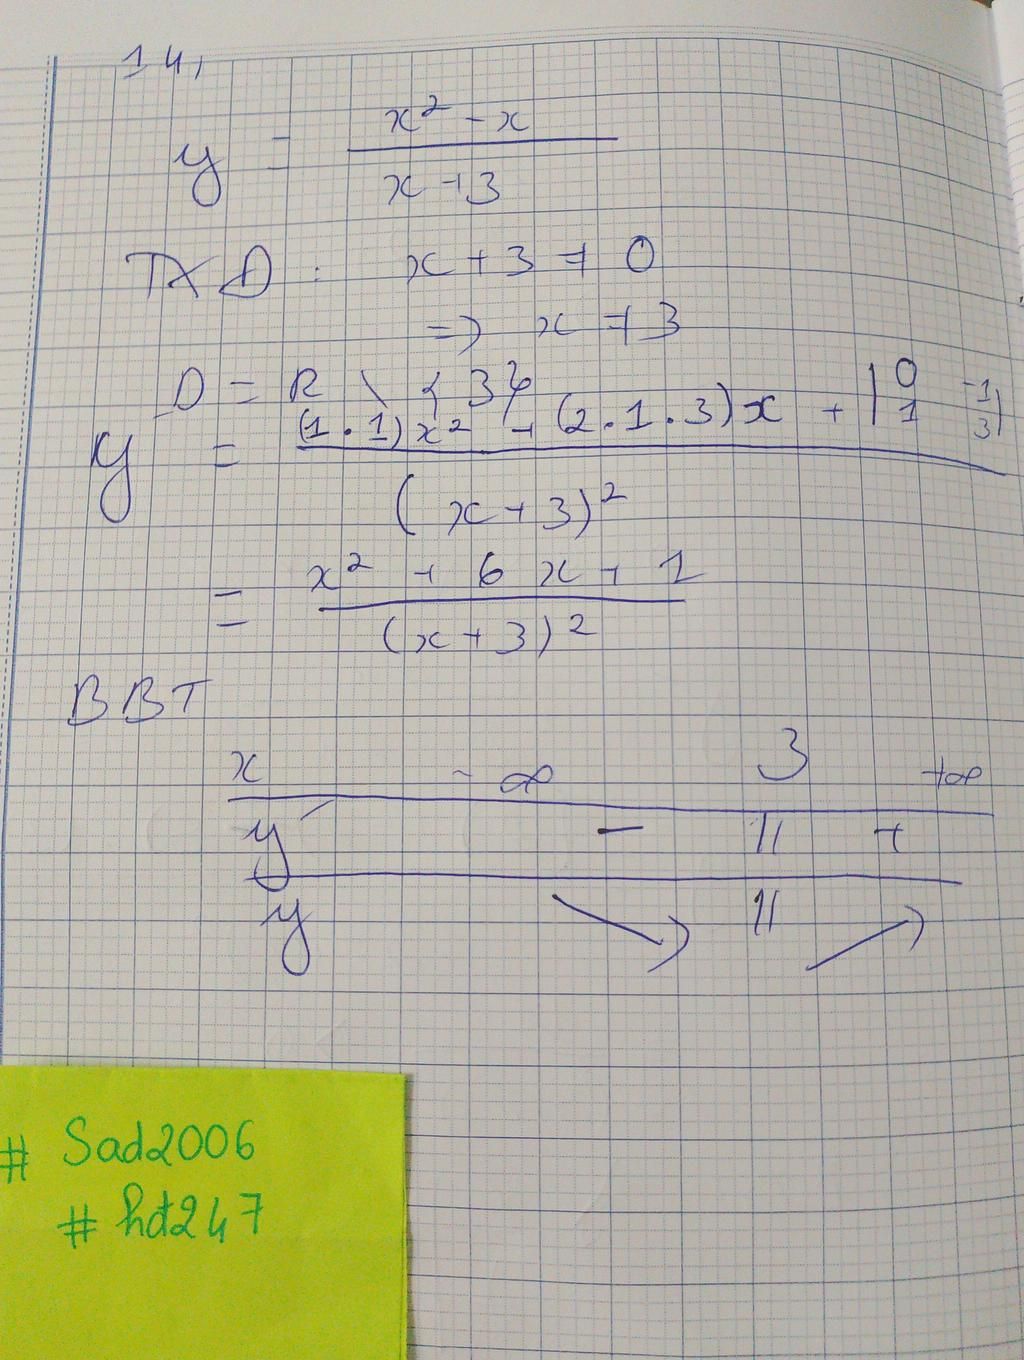 14,
y = x² - x / x + 3
TXD : x + 3 ≠ 0
=> x ≠ 3
D = R \ {3}
y = (1.1)x² + (2.1.3)x + |0 -1| |1 3| / (x+3)²
= x² + 6x + 1 / (x+3)²
BBT
x -∞ 3 +∞
y' - || +
y ↘ || ↗
# Sad2006
# hdt247